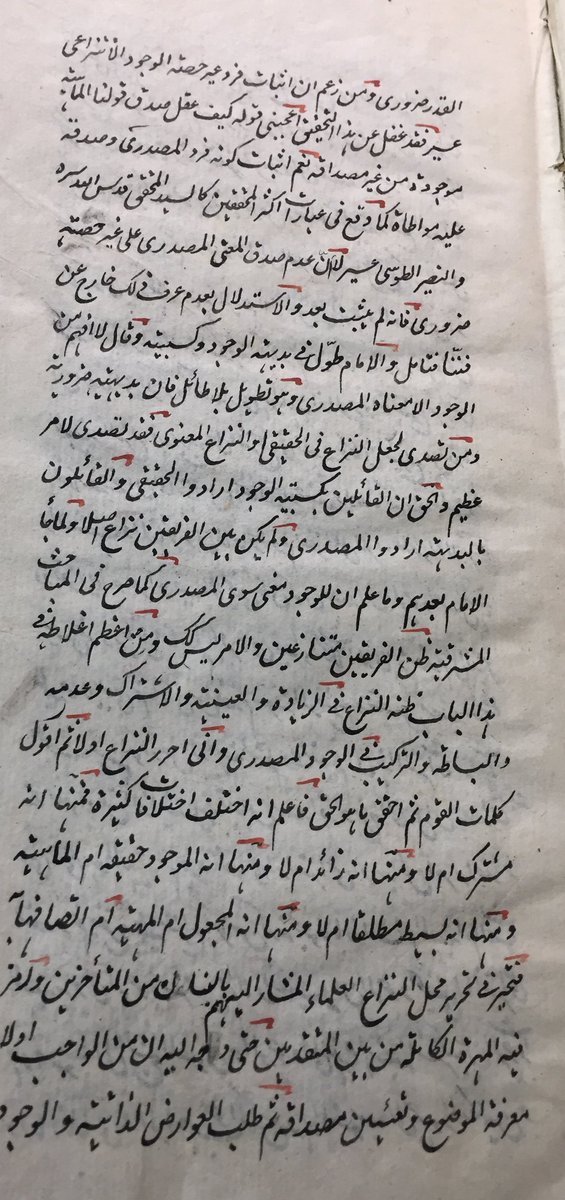 القدر ضرورى ومن زعم ان اثبات فرد غير حصته الوجود الانتزاعى
عسير فقد غفل عن هذا التحقيق اعجبنى قوله كيف عقل صدق قولنا الماهية
موجودة من غير مصداقه نعم اثبات كونه فرد المصدرى وصدقه
عليه مواطاة كما وقع فى عبارات اكثر المحققين كالسيد المحقق قدس سره
والنصير الطوسى عسير لان عدم صدق المعنى المصدرى على غير حصته
ضرورى فانه لم يثبت بعد والاستدلال بعدم عرف ذلك خارج عن
فننا فتامل والامام طول فى بديهية الوجود وكسبيته وقال لا افهم من
الوجود الا معناه المصدرى وهو تطويل بلا طائل فان بديهيته ضرورية
ومن تصدى لجعل النزاع فى الحقيقى والنزاع المعنوى فقد تصدى لامر
عظيم والحق ان القائلين بكسبية الوجود ارادوا الحقيقى والقائلون
بالبديهية ارادوا المصدرى ولم يكن بين الفريقين نزاع اصلا ولما جأ
الامام بعدهم وما علم ان للوجود معنى سوى المصدرى كما صرح فى المباحث
المشرقية ظن الفريقين متنازعين والامر ليس كك ومن اعظم اغلاطه فى
هذا الباب ظنه النزاع فى الزيادة والعينية والاشتراك وعدمه
والبساطة والتركيب فى الوجود المصدرى وانى احرر النزاع اولا ثم اقول
كلمات القوم ثم احقق ما هو الحق فاعلم انه اختلف اختلافات كثيرة فمنها انه
مشترك ام لا ومنها انه زائد ام لا ومنها انه الموجود حقيقه ام الماهية
ومنها انه بسيط مطلقا ام لا ومنها انه المجعول ام المهية ام اتصافها به
فتحير فى تحرير محل النزاع العلماء المشار اليهم بالبنان من المتأخرين
فيه المهرة الكاملة من بين المتقدمين حتى اليه ان من الواجب اولا
معرفة الموضوع وتعيين مصداقه ثم طلب العوارض الذاتية والوجود